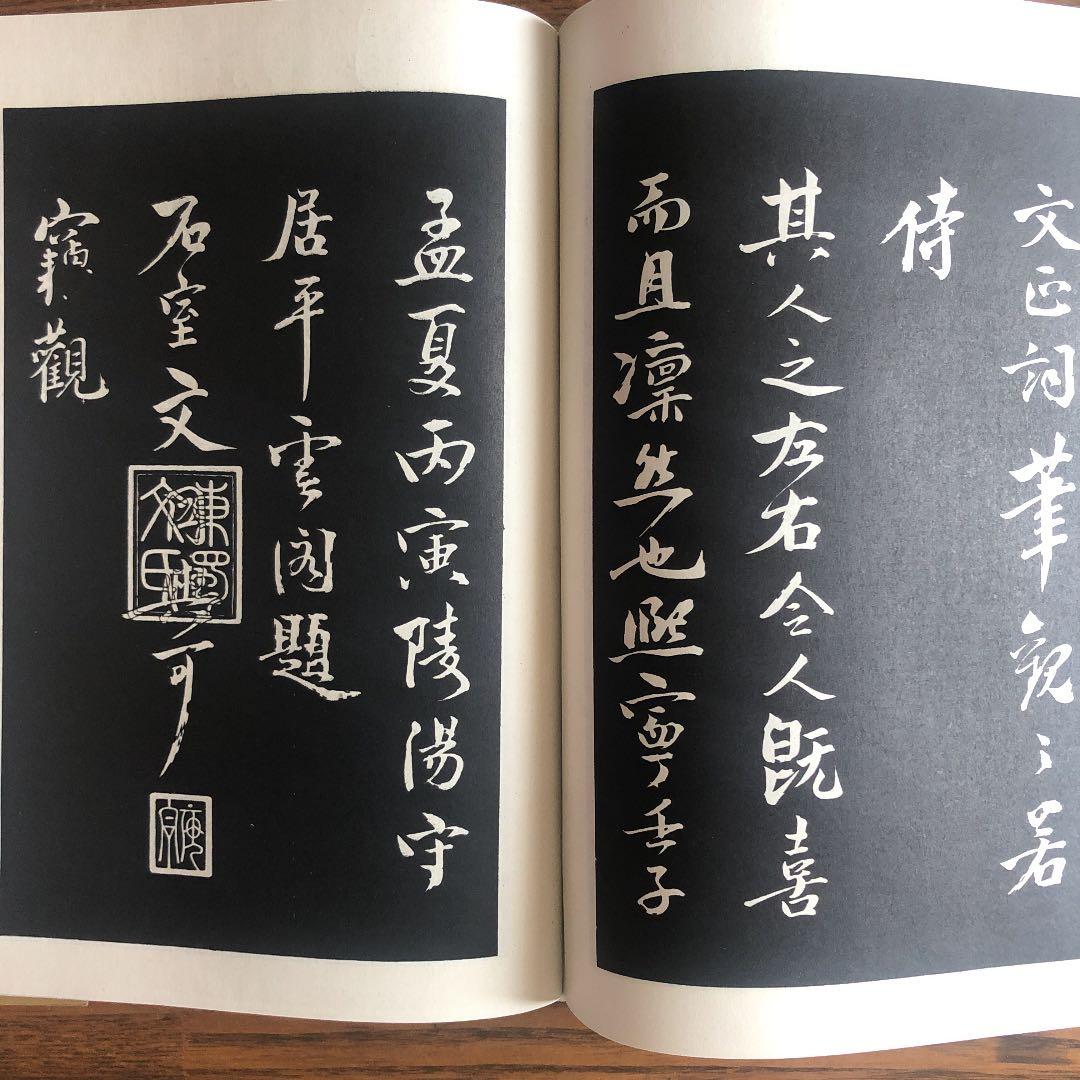 文正詞筆觀之若
侍
其人之左右令人既喜
而且凜然也熙寧壬子
孟夏丙寅陵陽守
居平雲閣題
石室文與可
東蜀文氏
竊觀